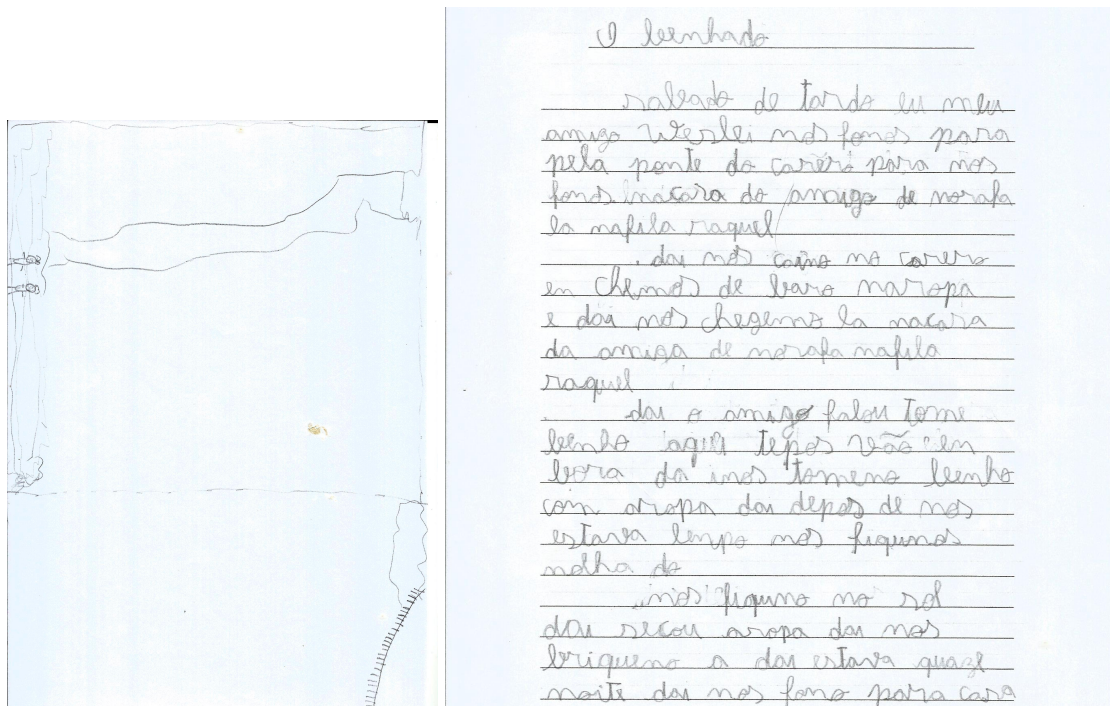 O beenhado
sabado de tardo eu meu
amigo Weslei nos fonos para
pela ponte do corero para nos
fonos nacara do amigo de norafa
la nafila raquel
dai nos caino no corero
en chemos de baro naropa
e dai nos chegemo la nacara
da amiga de norafa nafila
raquel
dai o amigo falou tome
benho aqui tepos vão en
bora da inos tomeno beenho
com aropa dai depos de nos
estava lenpo nos fiqunos
molha do
nos fiquno no sol
dai secou aropa dai nos
briqueno a dai estava quaze
noite dai nos fono para casa